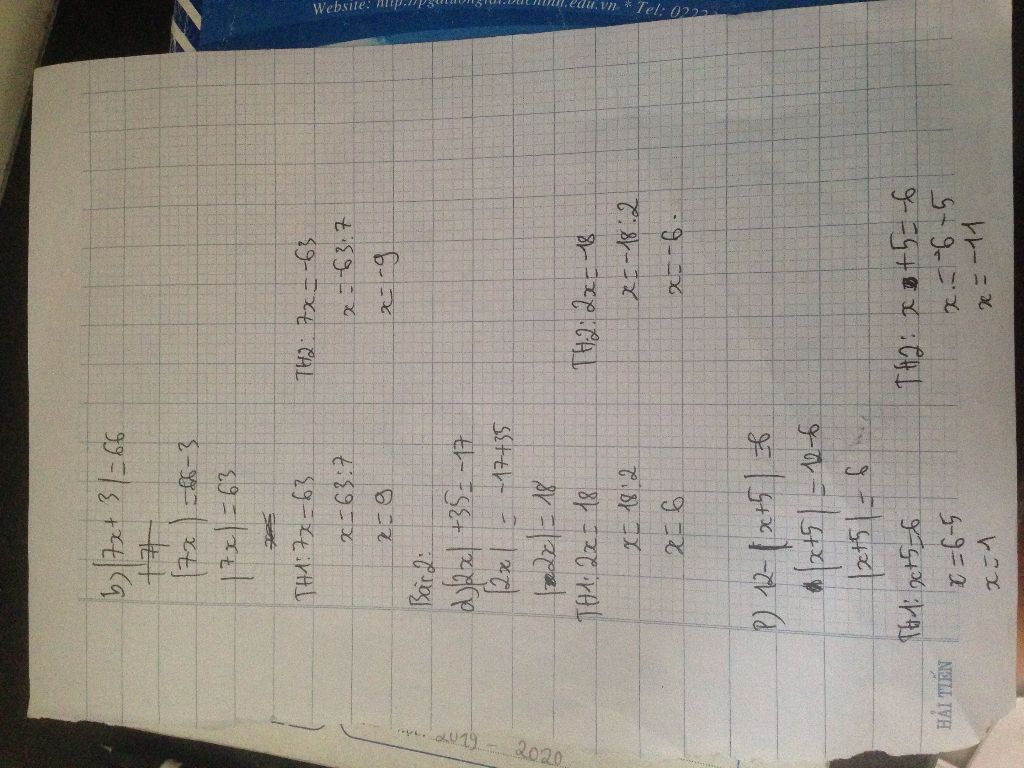 b) |7x + 3| = 66
|7x| = 66 - 3
|7x| = 63
TH1: 7x = 63
TH2: 7x = -63
x = 63 : 7
x = -63 : 7
x = 9
x = -9
Bài 2:
d) |2x| + 35 = -17
|2x| = -17 + 35
|2x| = 18
TH1: 2x = 18
TH2: 2x = -18
x = 18 : 2
x = -18 : 2
x = 6
x = -6.
p) 12 - |x + 5| = 6
|x + 5| = 12 - 6
|x + 5| = 6
TH1: x + 5 = 6
TH2: x + 5 = -6
x = 6 - 5
x = -6 - 5
x = 1
x = -11
HẢI TIẾN
2019 - 2020